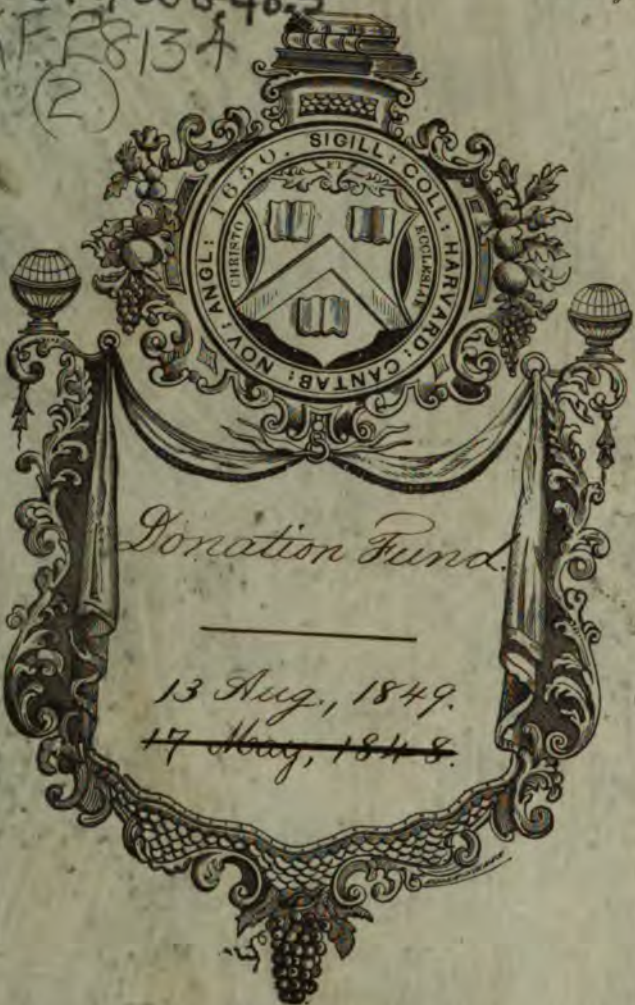 F 28134
(2)
SIGILL: COLL: HARVARD: CANTAB: NOV: ANGL: 1650.
ET
CHRISTO
ECCLESIAE
Donation Fund.
13 Aug., 1849.
17 May, 1848.